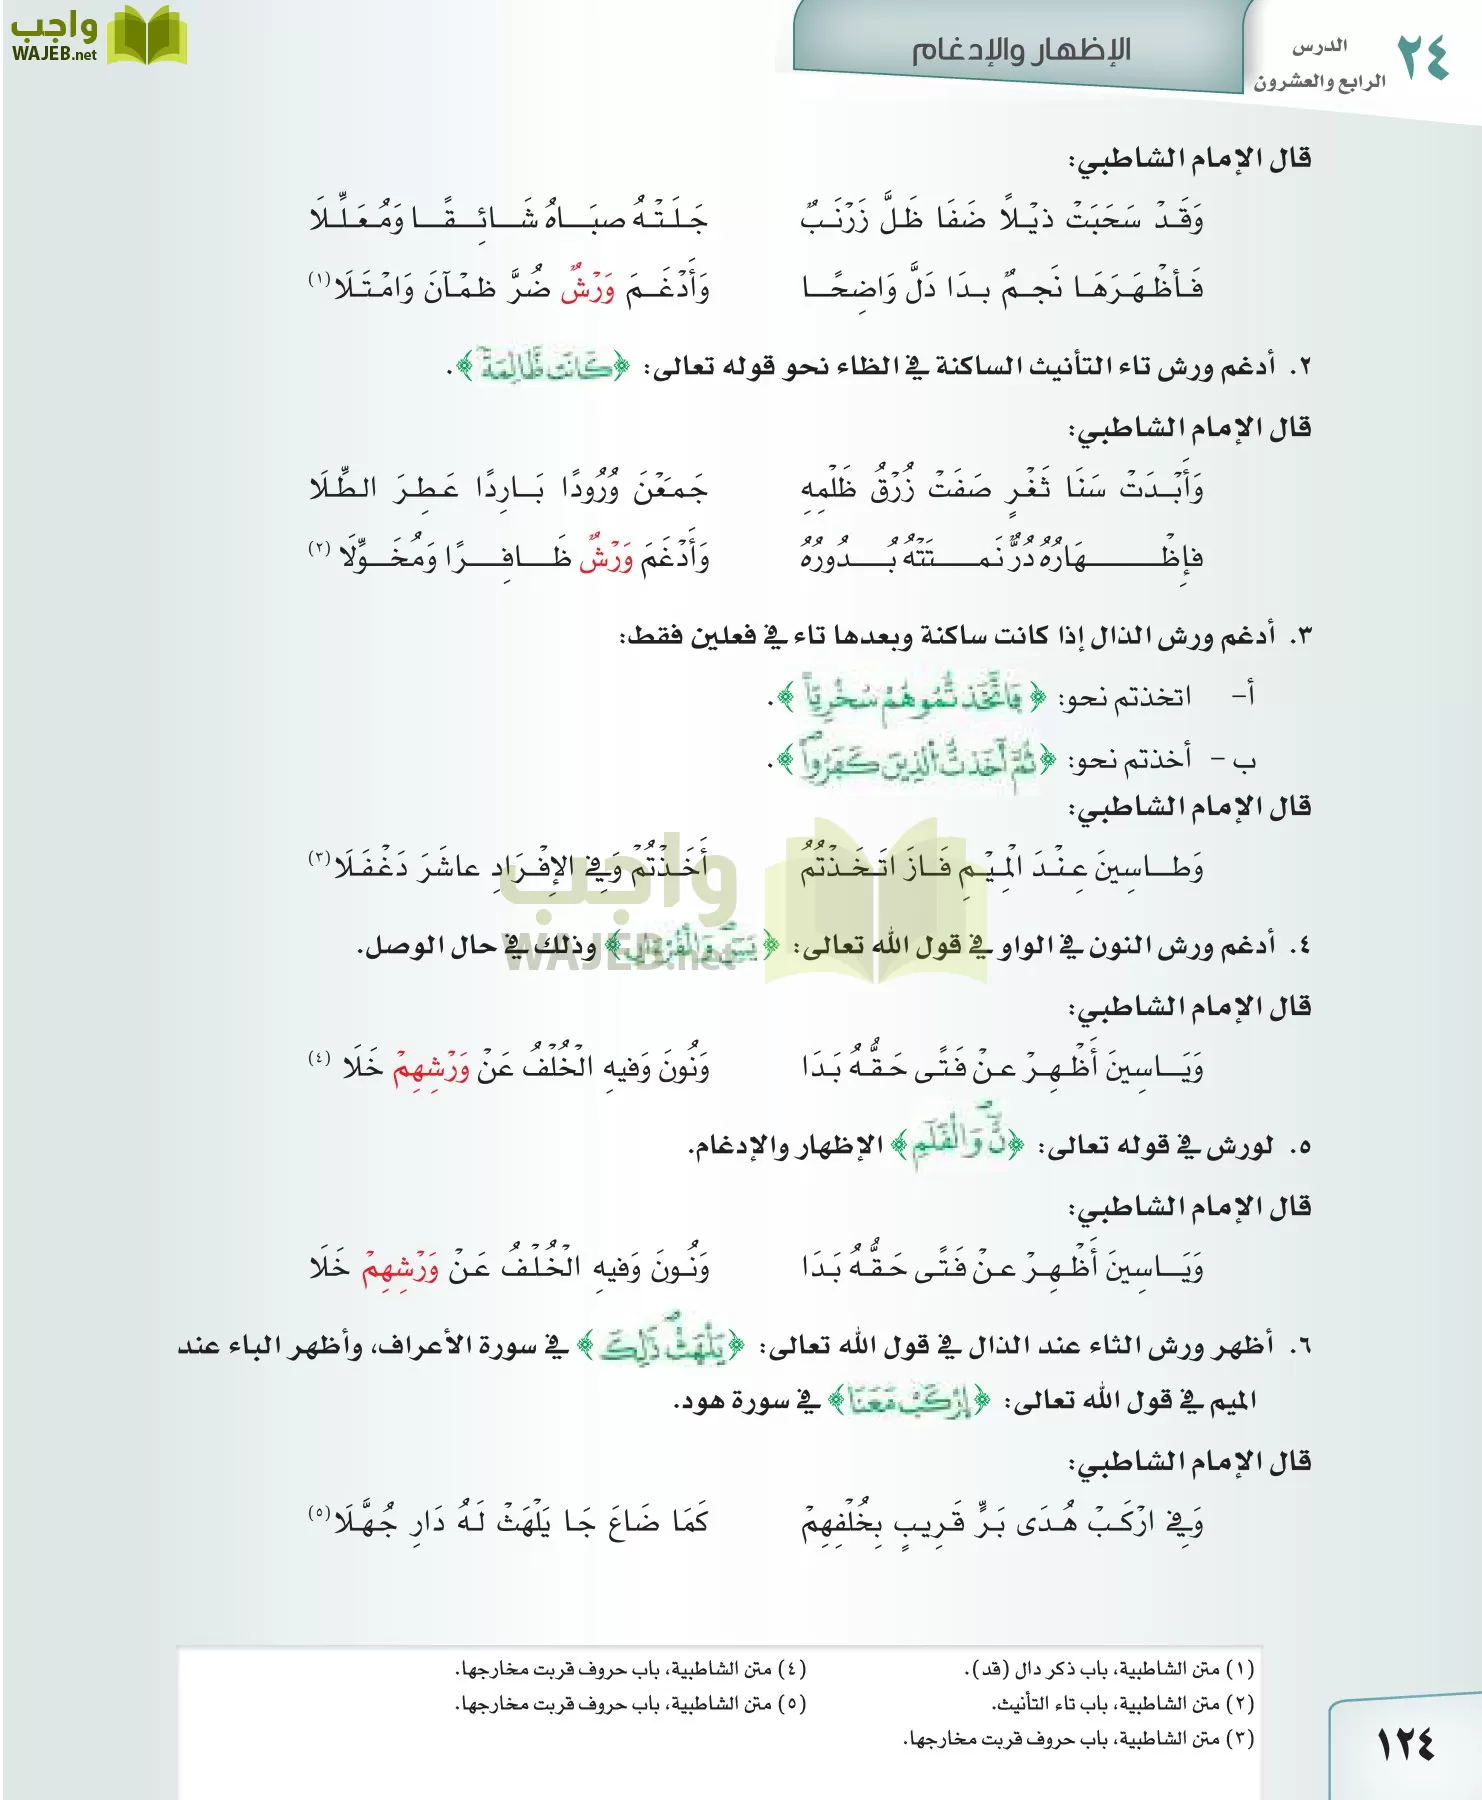 واجب
WAJEB.net
٢٤
الدرس
الرابع والعشرون
الإظهار والإدغام
قال الإمام الشاطبي:
وَقَدْ سَحَبَتْ ذيْلاً ضَفَا ظَلَّ زَرْنَبٌ جَلَتْهُ صبَاهُ شَائِقًا وَمُعَلِّلَا
فَأظْهَرَهَا نَجمٌ بدَا دَلَّ وَاضِحًا وَأَدْغَمَ وَرْشٌ ضُرَّ ظمْآنَ وَامْتَلَا(١)
٢. أدغم ورش تاء التأنيث الساكنة في الظاء نحو قوله تعالى: ﴿كَانَت ظَّالِمَةً﴾.
قال الإمام الشاطبي:
وَأَبْدَتْ سَنَا ثَغْرٍ صَفَتْ زُرْقُ ظَلْمِهِ جَمعْنَ وُرُودًا بَارِدًا عَطِرَ الطِّلَا
فإِظْهَارُهُ دُرٌّ نَمتَتْهُ بُدُورُهُ وَأَدْغَمَ وَرْشٌ ظَافِرًا وَمُخَوِّلَا (٢)
٣. أدغم ورش الذال إذا كانت ساكنة وبعدها تاء في فعلين فقط:
أ- اتخذتم نحو: ﴿فَاتَّخَذتُّمُوهُمْ سُخْرِيّاً﴾.
ب - أخذتم نحو: ﴿ثُمَّ أَخَذتُّ الذِينَ كَفَرُواْ﴾.
قال الإمام الشاطبي:
وَطاسِينَ عِنْدَ الْمِيْمِ فَازَ اتَخَذْتُمُ أَخَذْتُمْ وَفي الإفْرَادِ عاشَرَ دَغْفَلَا(٣)
واجب
WAJEB.net
٤. أدغم ورش النون في الواو في قول الله تعالى: ﴿يَسٓ وَالْقُرْءَانِ﴾ وذلك في حال الوصل.
قال الإمام الشاطبي:
وَيَاسِينَ أَظْهِرْ عنْ فَتًى حَقُّهُ بَدَا وَنُونَ وَفيهِ الْخُلْفُ عَنْ وَرْشِهِمْ خَلَا (٤)
٥. لورش في قوله تعالى: ﴿نٓ وَالْقَلَمِ﴾ الإظهار والإدغام.
قال الإمام الشاطبي:
وَيَاسِينَ أَظْهِرْ عنْ فَتًى حَقُّهُ بَدَا وَنُونَ وَفيهِ الْخُلْفُ عَنْ وَرْشِهِمْ خَلَا
٦. أظهر ورش الثاء عند الذال في قول الله تعالى: ﴿يَلْهَثْ ذَٰلِكَ﴾ في سورة الأعراف، وأظهر الباء عند
الميم في قول الله تعالى: ﴿اِرْكَبْ مَعَنَا﴾ في سورة هود.
قال الإمام الشاطبي:
وَفي ارْكَبْ هُدَى بَرٍّ قَرِيبٍ بِخُلْفِهِمْ كَمَا ضَاعَ جَا يَلْهَثْ لَهُ دَارِ جُهَّلَا(٥)
(١) متن الشاطبية، باب ذكر دال (قد).
(٢) متن الشاطبية، باب تاء التأنيث.
(٣) متن الشاطبية، باب حروف قربت مخارجها.
(٤) متن الشاطبية، باب حروف قربت مخارجها.
(٥) متن الشاطبية، باب حروف قربت مخارجها.
١٢٤